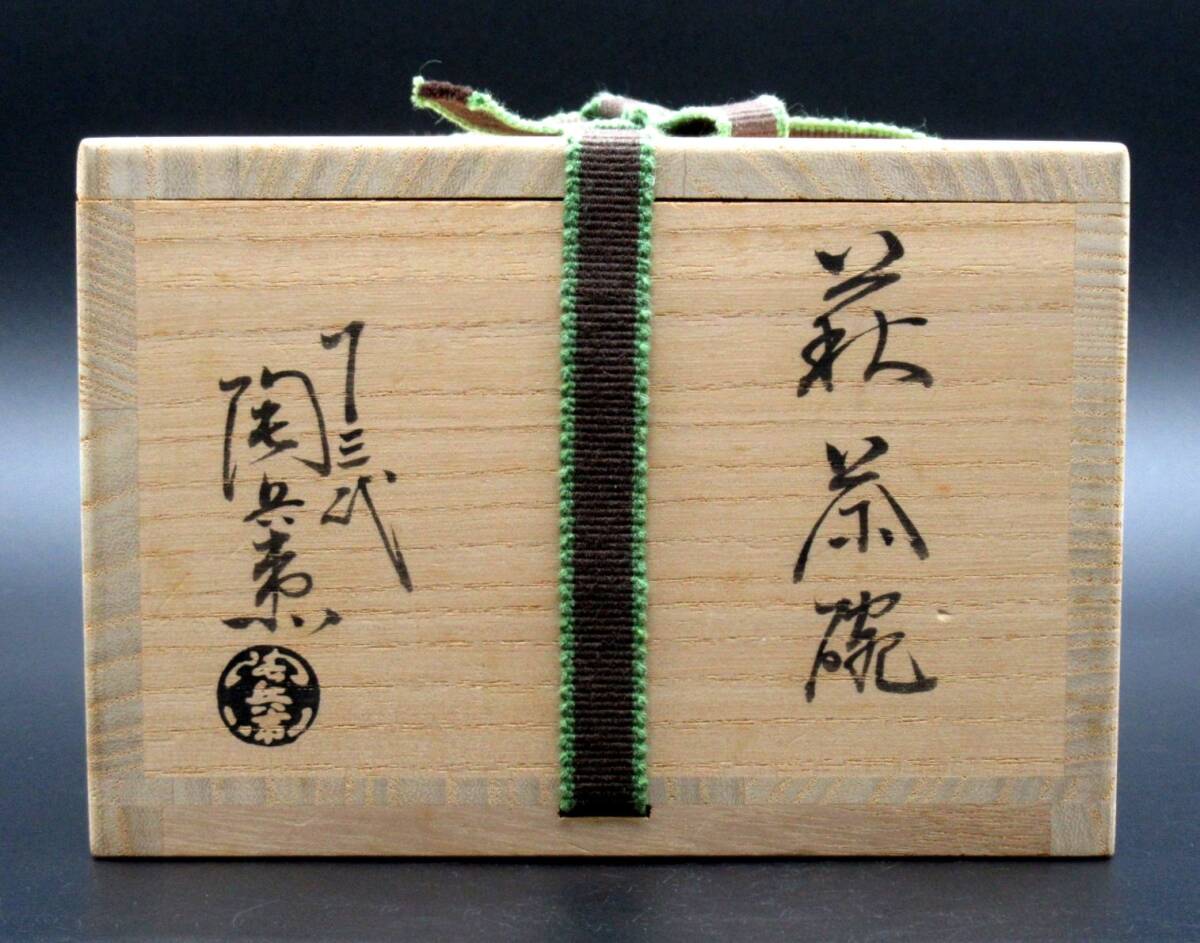 萩茶碗
十三代
陶兵衛
陶兵衛